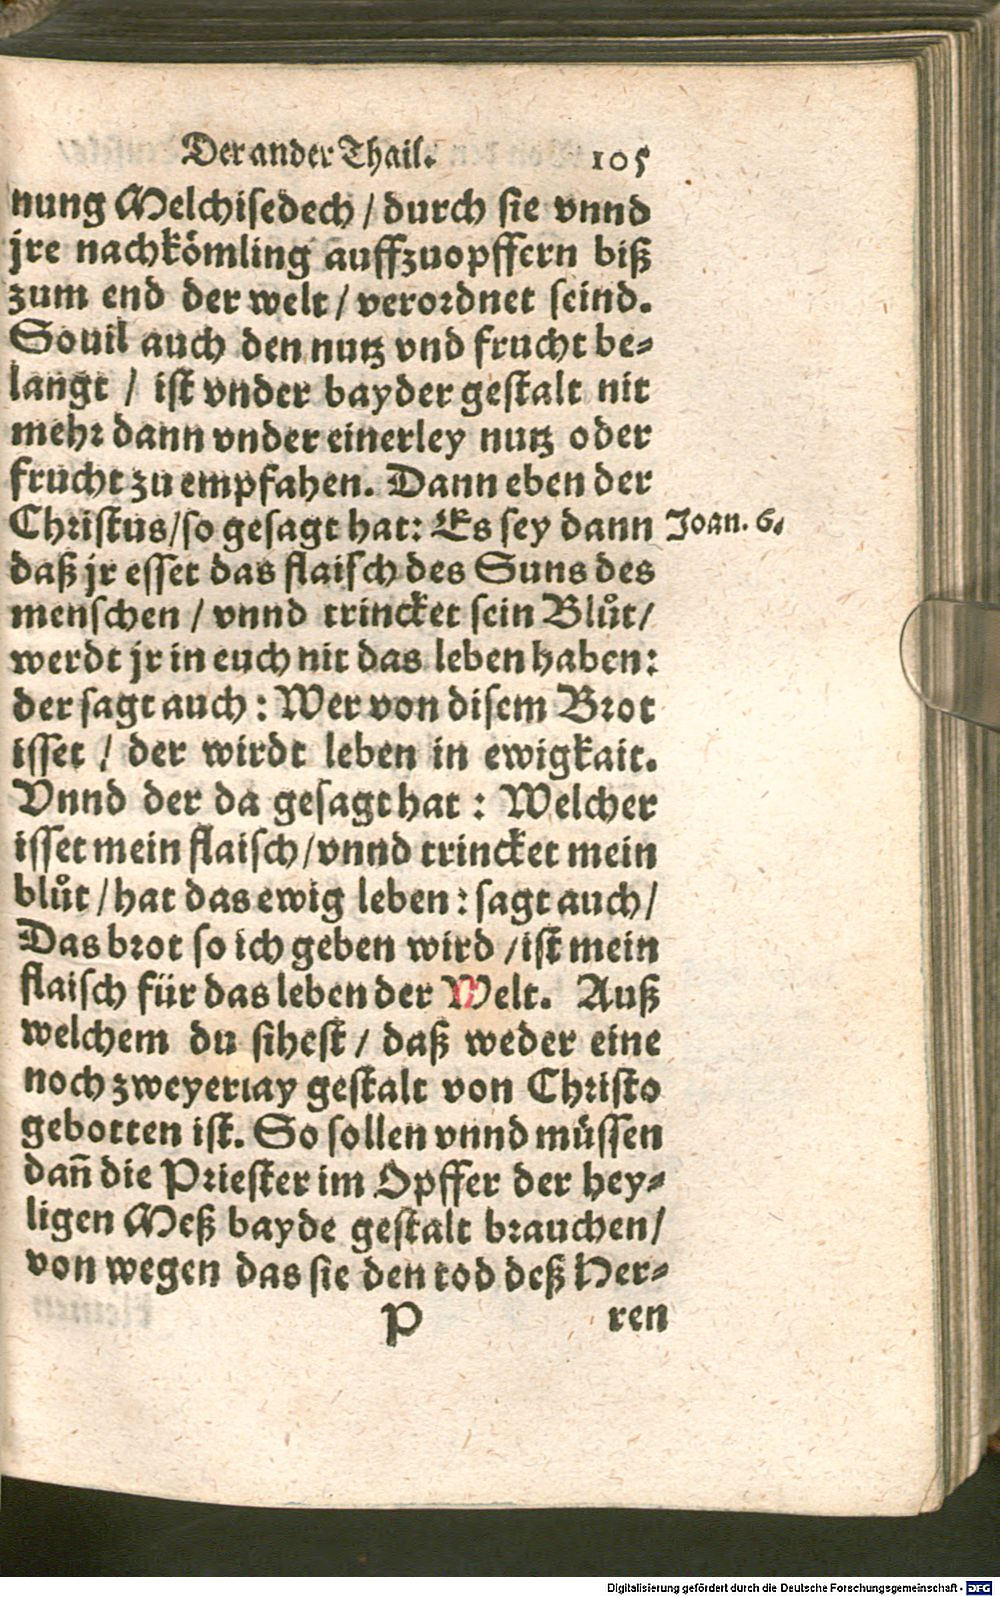 Der ander Thail. 105
nung Melchisedech / durch sie vnnd
jre nachkömling auffzuopffern biß
zum end der welt / verordnet seind.
Souil auch den nutz vnd frucht be-
langt / ist vnder bayder gestalt nit
mehr dann vnder einerley nutz oder
frucht zu empfahen. Dann eben der
Christus/so gesagt hat: Es sey dann Joan. 6.
daß jr esset das flaisch des Suns des
menschen / vnnd trincket sein Blůt/
werdt jr in euch nit das leben haben:
der sagt auch : Wer von disem Brot
isset / der wirdt leben in ewigkait.
Vnnd der da gesagt hat : Welcher
isset mein flaisch/vnnd trincket mein
blůt /hat das ewig leben : sagt auch/
Das brot so ich geben wird /ist mein
flaisch für das leben der Welt. Auß
welchem du sihest / daß weder eine
noch zweyerlay gestalt von Christo
gebotten ist. So sollen vnnd müssen
dañ die Priester im Opffer der hey-
ligen Meß bayde gestalt brauchen/
von wegen das sie den tod deß Her-
P ren
Digitalisierung gefördert durch die Deutsche Forschungsgemeinschaft - DFG